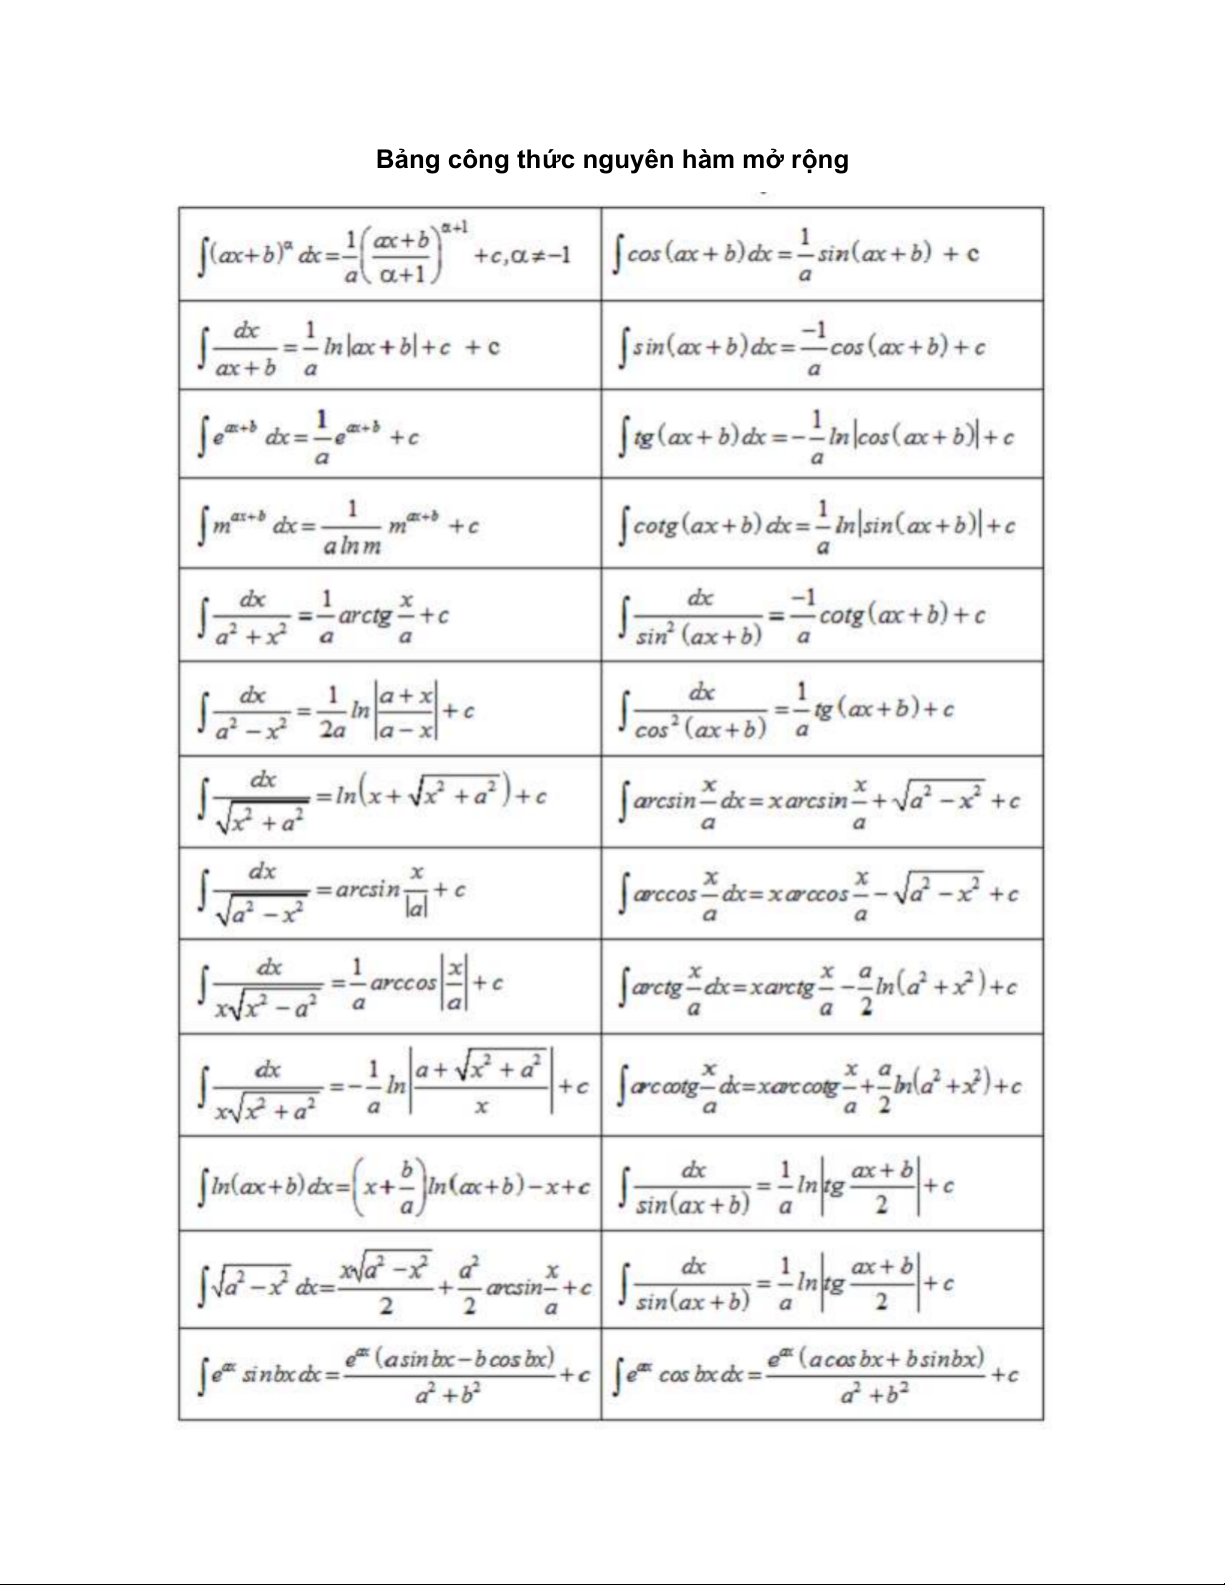 Bảng công thức nguyên hàm mở rộng
∫(ax+b)^α dx = 1/a ((ax+b)/(α+1))^(α+1) + c, α ≠ −1
∫cos(ax+b)dx = 1/a sin(ax+b) + c
∫dx/(ax+b) = 1/a ln|ax+b| + c + c
∫sin(ax+b)dx = −1/a cos(ax+b) + c
∫e^(ax+b) dx = 1/a e^(ax+b) + c
∫tg(ax+b)dx = −1/a ln|cos(ax+b)| + c
∫m^(ax+b) dx = 1/(a ln m) m^(ax+b) + c
∫cotg(ax+b)dx = 1/a ln|sin(ax+b)| + c
∫dx/(a²+x²) = 1/a arctg x/a + c
∫dx/(sin²(ax+b)) = −1/a cotg(ax+b) + c
∫dx/(a²−x²) = 1/(2a) ln|(a+x)/(a−x)| + c
∫dx/(cos²(ax+b)) = 1/a tg(ax+b) + c
∫dx/√(x²+a²) = ln(x+√(x²+a²)) + c
∫arcsin x/a dx = x arcsin x/a + √(a²−x²) + c
∫dx/√(a²−x²) = arcsin x/|a| + c
∫arccos x/a dx = x arccos x/a − √(a²−x²) + c
∫dx/(x√(x²−a²)) = 1/a arccos|x/a| + c
∫arctg x/a dx = x arctg x/a − a/2 ln(a²+x²) + c
∫dx/(x√(x²+a²)) = −1/a ln|(a+√(x²+a²))/x| + c
∫arccotg x/a dx = x arccotg x/a + a/2 ln(a²+x²) + c
∫ln(ax+b)dx = (x+b/a)ln(ax+b) − x + c
∫dx/(sin(ax+b)) = 1/a ln|tg (ax+b)/2| + c
∫√(a²−x²) dx = (x√(a²−x²))/2 + a²/2 arcsin x/a + c
∫dx/(sin(ax+b)) = 1/a ln|tg (ax+b)/2| + c
∫e^(ax) sin bx dx = (e^(ax)(a sin bx − b cos bx))/(a²+b²) + c
∫e^(ax) cos bx dx = (e^(ax)(a cos bx + b sin bx))/(a²+b²) + c